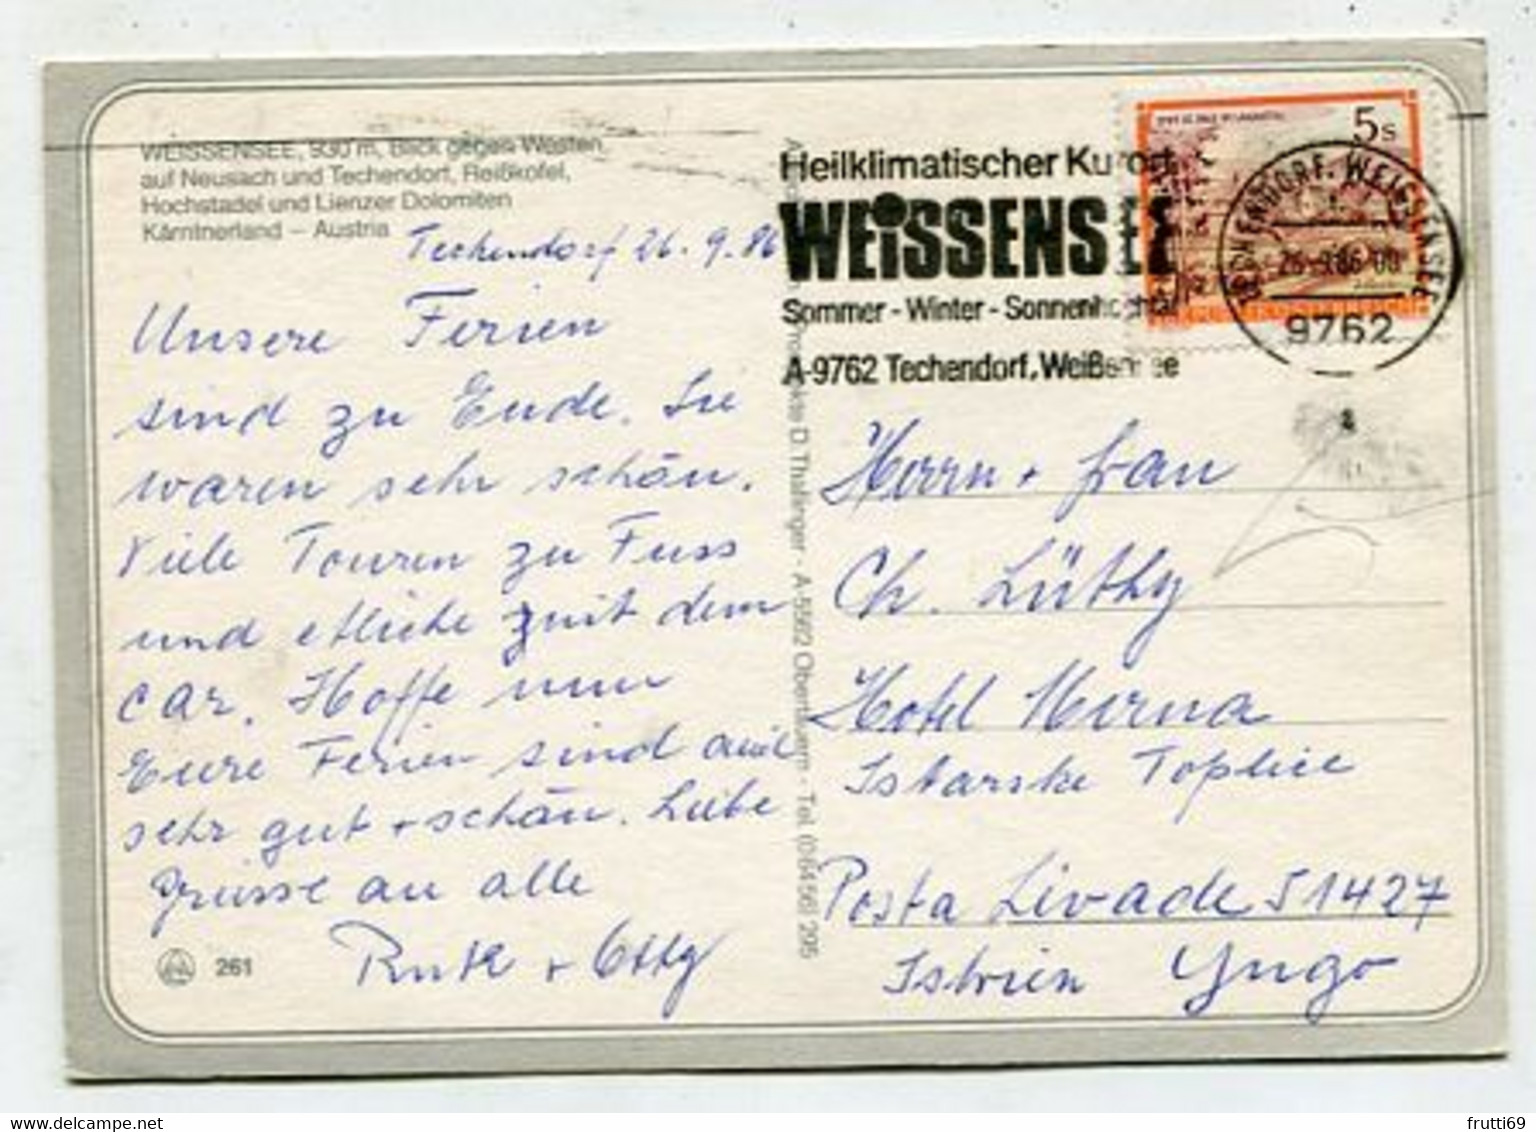 WEISSENSEE, 930 m, Blick gegen Westen,
auf Neusach und Techendorf, Reißkofel,
Hochstadel und Lienzer Dolomiten
Kärntnerland – Austria
Techendorf 26.9.86
Unsere Ferien
sind zu Ende. Sie
waren sehr schön.
Viele Touren zu Fuss
und etliche mit dem
car. Hoffe nun
Eure Ferien sind auch
sehr gut + schön. Liebe
Grüsse an alle
Ruth + Otty
261
D. Thalinger - A-5562 Obertauern - Tel. (0 64 56) 295
Heilklimatischer Kurort
WEiSSENSEE
Sommer - Winter - Sonnenhochtal
A-9762 Techendorf, Weißensee
5 S
TECHENDORF, WEISSENSEE
26.-9.86-00
9762
Herrn + Frau
Ch. Lüthy
Hotel Mirna
Istarske Toplice
Posta Livade 51427
Istrien Yugo
frutti69